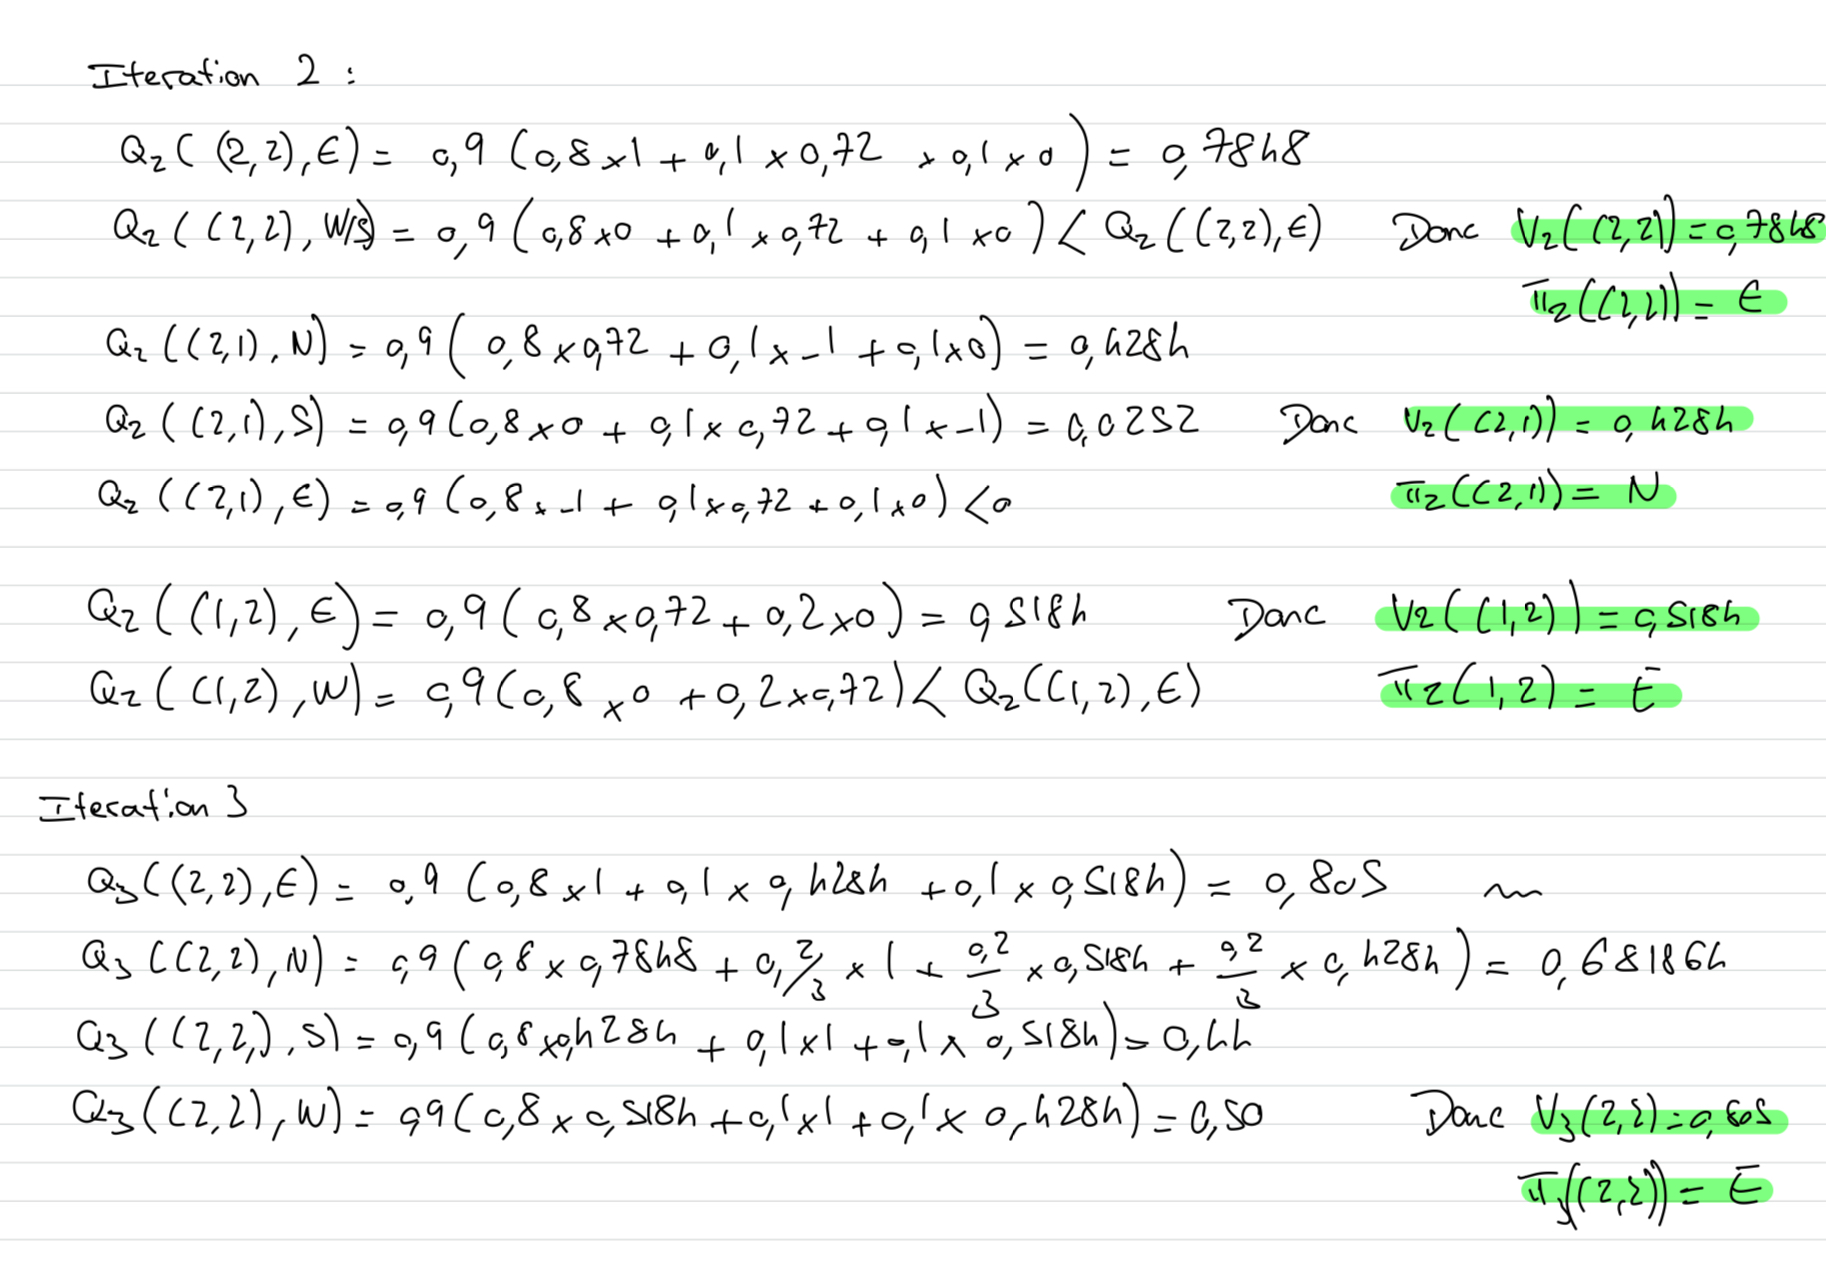 Iteration 2 :
Q₂( (2,2),E) = 0,9 (0,8 x1 + 0,1 x 0,72 + 0,1 x 0) = 0,7848
Q₂ ( (2,2), W/S) = 0,9 (0,8 x0 + 0,1 x 0,72 + 0,1 x0) < Q₂ ((2,2),E) Donc V₂((2,2)) = 0,7848
π₂((2,2)) = E
Q₂ ((2,1), N) = 0,9 ( 0,8 x 0,72 + 0,1 x -1 + 0,1x0) = 0,4284
Q₂ ( (2,1), S) = 0,9 (0,8 x 0 + 0,1 x 0,72 + 0,1 x -1) = 0,0252 Donc V₂((2,1)) = 0,4284
Q₂ ((2,1), E) = 0,9 (0,8 x -1 + 0,1x0,72 + 0,1x0) <0 π₂((2,1)) = N
Q₂ ( (1,2), E) = 0,9 ( 0,8 x 0,72 + 0,2 x0) = 0,5184 Donc V₂((1,2)) = 0,5184
Q₂ ((1,2), W) = 0,9 (0,8 x0 + 0,2 x 0,72) < Q₂((1,2), E) π₂(1,2) = E
Iteration 3
Q₃((2,2),E) = 0,9 (0,8 x1 + 0,1 x 0,4284 + 0,1 x 0,5184) = 0,805 ~
Q₃ ((2,2), N) = 0,9 ( 0,8 x 0,7848 + 0,2/3 x 1 + 0,2/3 x 0,5184 + 0,2/3 x 0,4284 ) = 0,681864
Q₃ ((2,2,), S) = 0,9 (0,8 x0,4284 + 0,1x1 + 0,1 x 0,5184) = 0,44
Q₃ ((2,2), W) = 0,9 (0,8 x 0,5184 + 0,1x1 + 0,1 x 0,4284) = 0,50 Donc V₃(2,2) = 0,805
π₃((2,2)) = E